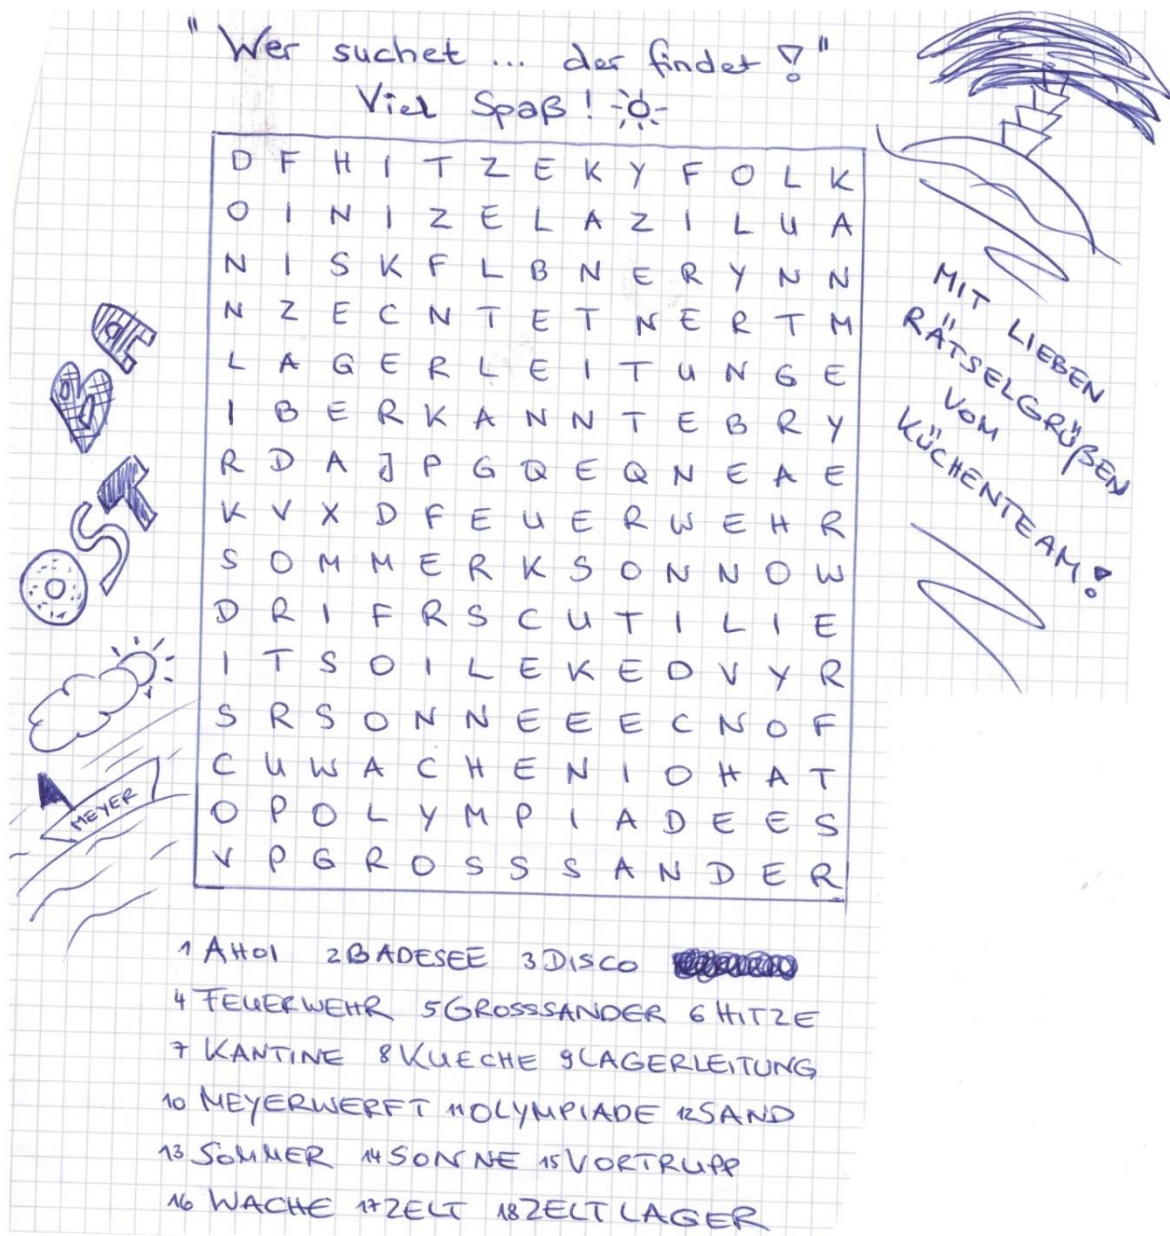 "Wer suchet ... der findet!"
Viel Spaß!
D F H I T Z E K Y F O L K
O I N I Z E L A Z I L U A
N I S K F L B N E R Y N N
N Z E C N T E T N E R T M
L A G E R L E I T U N G E
I B E R K A N N T E B R Y
R D A J P G Q E Q N E A E
K V X D F E U E R W E H R
S O M M E R K S O N N O W
D R I F R S C U T I L I E
I T S O I L E K E D V Y R
S R S O N N E E E C N O F
C U W A C H E N I O H A T
O P O L Y M P I A D E E S
V P G R O S S S A N D E R
MIT LIEBEN
RÄTSELGRÜßEN
VOM
KÜCHENTEAM!
OST
MEYER
1 AHOI 2 BADESEE 3 DISCO
4 FEUERWEHR 5 GROSSSANDER 6 HITZE
7 KANTINE 8 KUECHE 9 LAGERLEITUNG
10 MEYERWERFT 11 OLYMPIADE 12 SAND
13 SOMMER 14 SONNE 15 VORTRUPP
16 WACHE 17 ZELT 18 ZELTLAGER